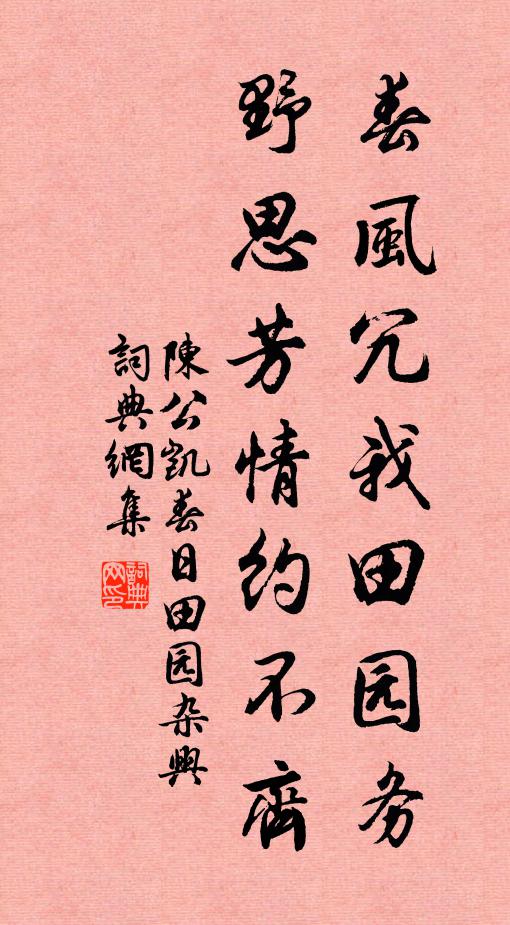 春風冗我田园务
野思芳情约不齊
陳公凯春日田园杂興
詞典網集
詞典网印